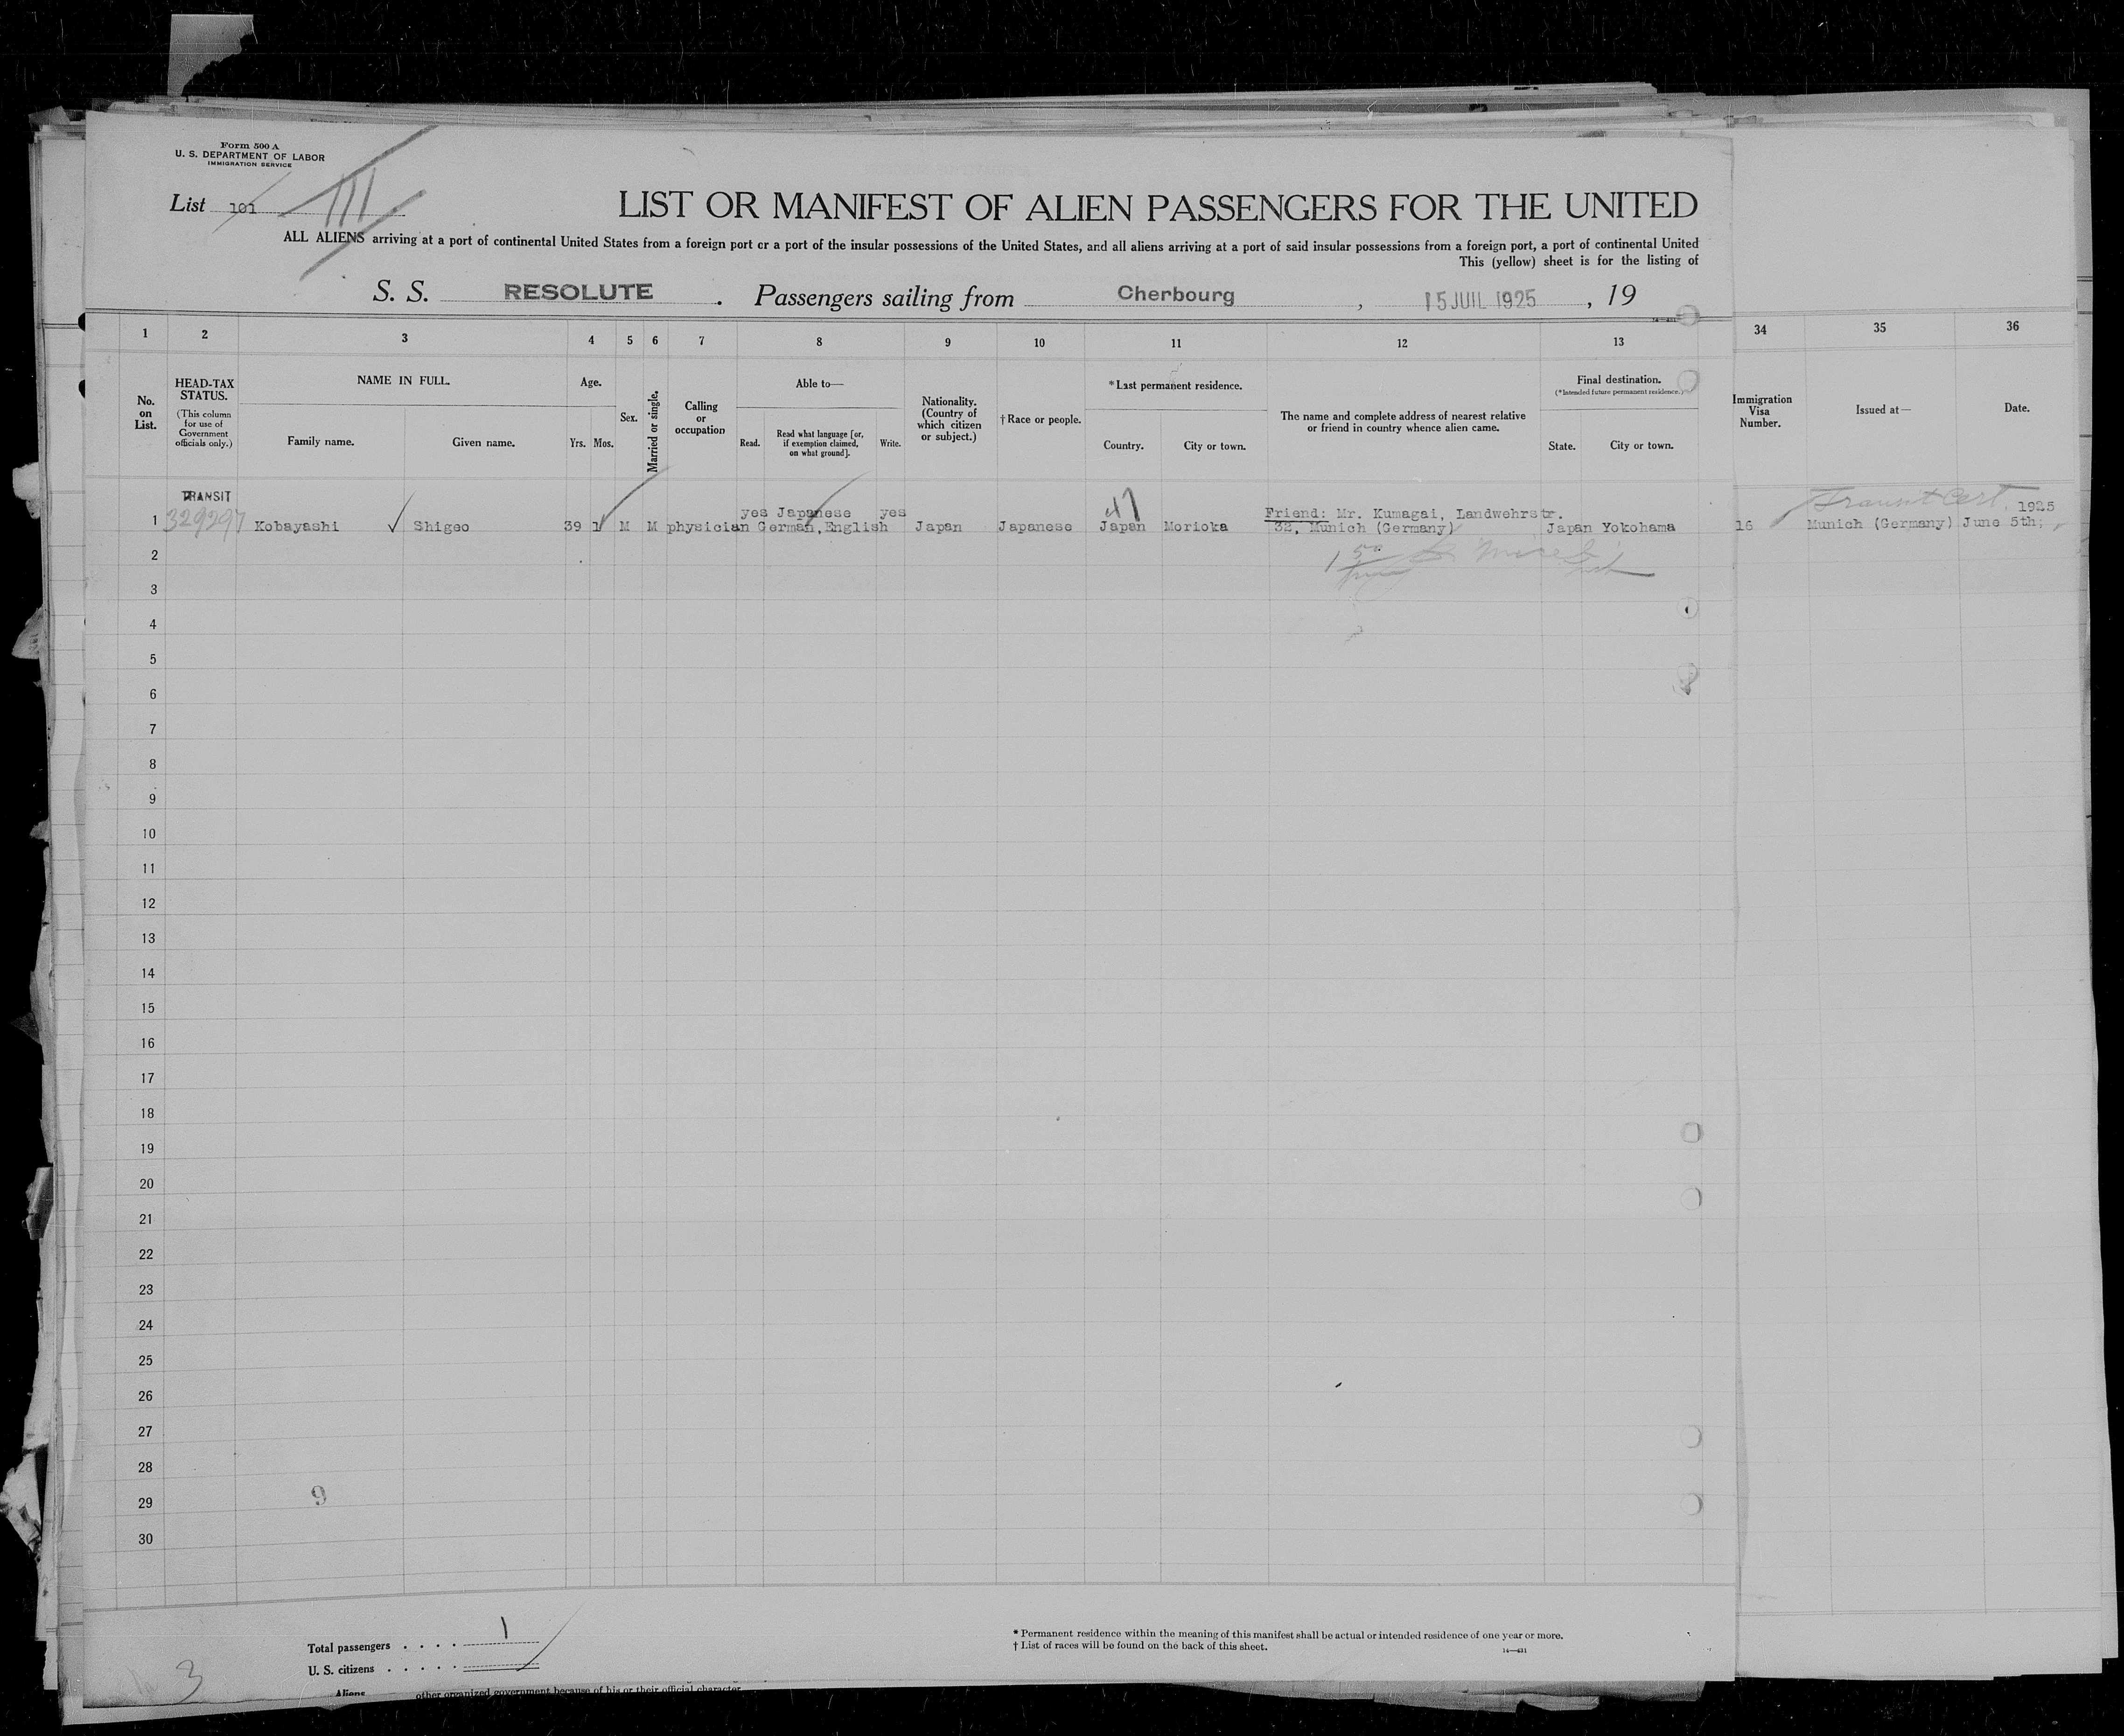 Form 500 A
U. S. DEPARTMENT OF LABOR
IMMIGRATION SERVICE
List 101 III
LIST OR MANIFEST OF ALIEN PASSENGERS FOR THE UNITED
ALL ALIENS arriving at a port of continental United States from a foreign port or a port of the insular possessions of the United States, and all aliens arriving at a port of said insular possessions from a foreign port, a port of continental United
This (yellow) sheet is for the listing of
S. S. RESOLUTE . Passengers sailing from Cherbourg , 15 JUIL 1925 , 19
1 2 3 4 5 6 7 8 9 10 11 12 13 34 35 36
No. on List.
HEAD-TAX STATUS.
(This column for use of Government officials only.)
NAME IN FULL.
Family name. Given name.
Age.
Yrs. Mos.
Sex.
Married or single.
Calling or occupation
Able to—
Read. Read what language [or, if exemption claimed, on what ground]. Write.
Nationality. (Country of which citizen or subject.)
† Race or people.
* Last permanent residence.
Country. City or town.
The name and complete address of nearest relative or friend in country whence alien came.
Final destination.
(* Intended future permanent residence.)
State. City or town.
Immigration Visa Number.
Issued at—
Date.
TRANSIT yes Japanese yes Friend: Mr. Kumagai, Landwehrstr. Transit Cert. 1925
1 329297 Kobayashi Shigeo 39 1 M M physician German, English Japan Japanese Japan Morioka 32, Munich (Germany) Japan Yokohama 16 Munich (Germany) June 5th;
2
3
4
5
6
7
8
9
10
11
12
13
14
15
16
17
18
19
20
21
22
23
24
25
26
27
28
29
30
9
Total passengers . . . . 1
U. S. citizens . . . . .
Aliens other organized government because of his or their official character
* Permanent residence within the meaning of this manifest shall be actual or intended residence of one year or more.
† List of races will be found on the back of this sheet.
14—431
3